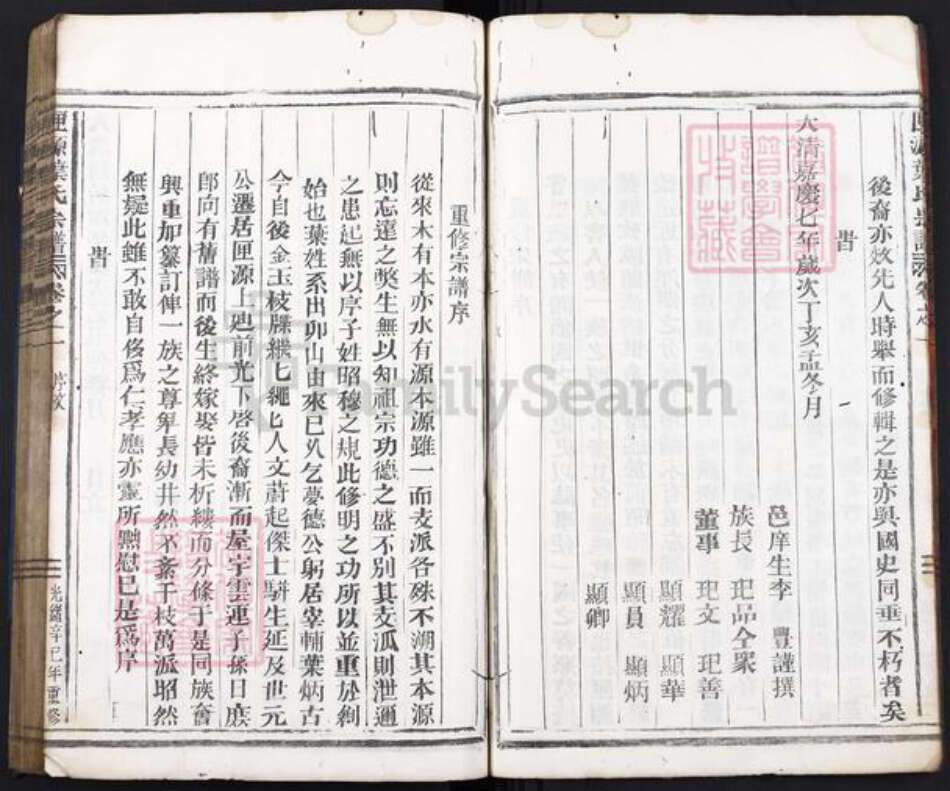 後裔亦效先人時舉而修輯之是亦與國史同垂不朽者矣
旹
大清嘉慶七年歲次丁亥孟冬月
邑庠生李 豐謹撰
族長 玘品仝眾
董事 玘文 玘善
顯耀 顯華
顯員 顯炳
顯卿
重修宗譜序
從來木有本亦水有源本源雖一而支派各殊不溯其本源
則忘遠之獘生無以知祖宗功德之盛不別其支派則泄通
之患起無以序子姓昭穆之規此修明之功所以並重於
始也葉姓系出卯山由來已久乞夢德公躬居宰輔葉炳古
今自後金玉枝牒繩七人文蔚起傑士駢生延及世元
公遷居匣源上廸前光下啓後裔漸而屋宇雲連子孫日庶
卽向有舊譜而後生終嫁娶皆未析縷而分條于是同族會
興重加纂訂俾一族之尊卑長幼井然不紊千枝萬派昭然
無疑此雖不敢自侈為仁孝應亦靈所黙慰已是為序
旹
匣源葉氏宗譜 卷之一 序敘
光緒辛巳年重修
FamilySearch